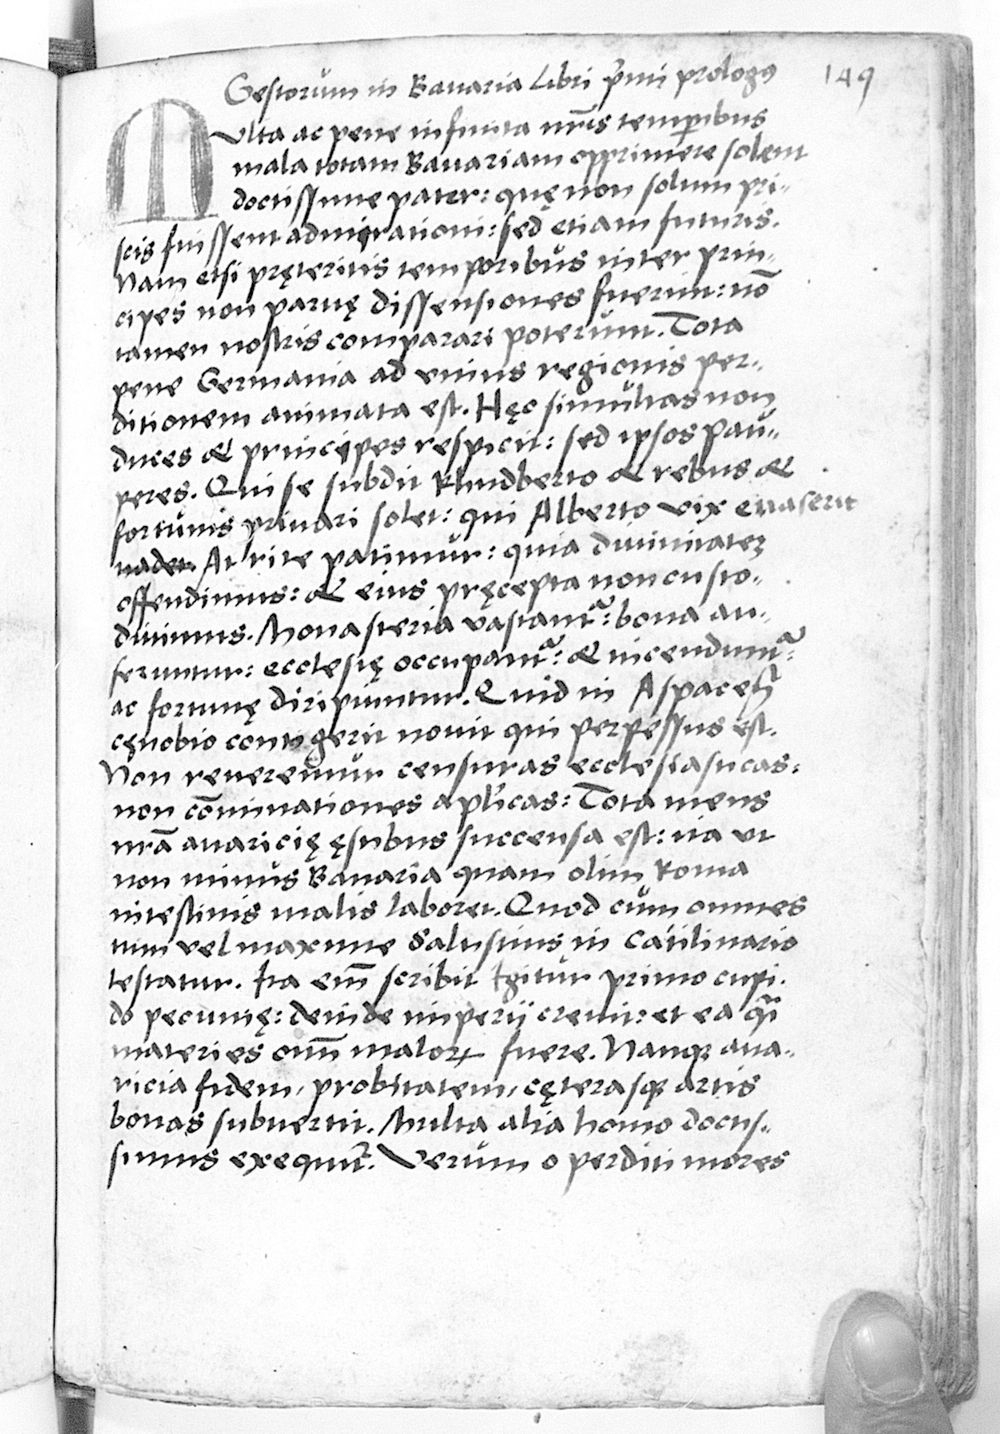 Gestorum in Bavaria Libri p̄mi prologꝯ 149
Multa ac pene infinita nr̄is temporibus
mala totam Bavariam opprimere solent
doctissime pater: quę non solum pri-
scis fuissent admirationi: sed etiam futuris.
Nam etsi pręteritis temporibus inter prin-
cipes non paruę dissensiones fuerint: nō
tamen nostris comparari poterunt. Tota
pene Germania ad unius regionis per-
ditionem animata est. Hęc simultas non
duces & principes respicit: sed ipsos pau-
peres. Qui se subdit Rhudberto & rebus &
fortunis priuari solet: qui Alberto vix evaserit
At rite patimur: quia diuinitatem
offendimus: & eius pręcepta non custo-
diuimus. Monasteria vastant᷑: bona au-
feruntur: ecclesię occupant᷑: & incendunt᷑:
ac fortunę diripiuntur. Quid in Aspaceñ
cęnobio contigerit nouit qui perpessus est.
Non reueremur censuras ecclesiasticas:
non cōminationes apl̄icas: Tota mens
nr̄a auaricię ęstibus succensa est: ita ut
non minus Bavaria quam olim Roma
intestinis malis laboret. Quod cum omnes
tum vel maxime Salustius in Catilinario
testatur. Ita em̄ scribit Igitur primo cupi-
do pecunię: deinde imperij creuit: et ea q̄si
materies om̄ malorꝝ fuere. Nanqꝫ aua-
ricia fidem, probitatem, cęterasqꝫ artis
bonas subuertit. Multa alia homo doctis-
simus exequit᷑. Verum o perditi mores